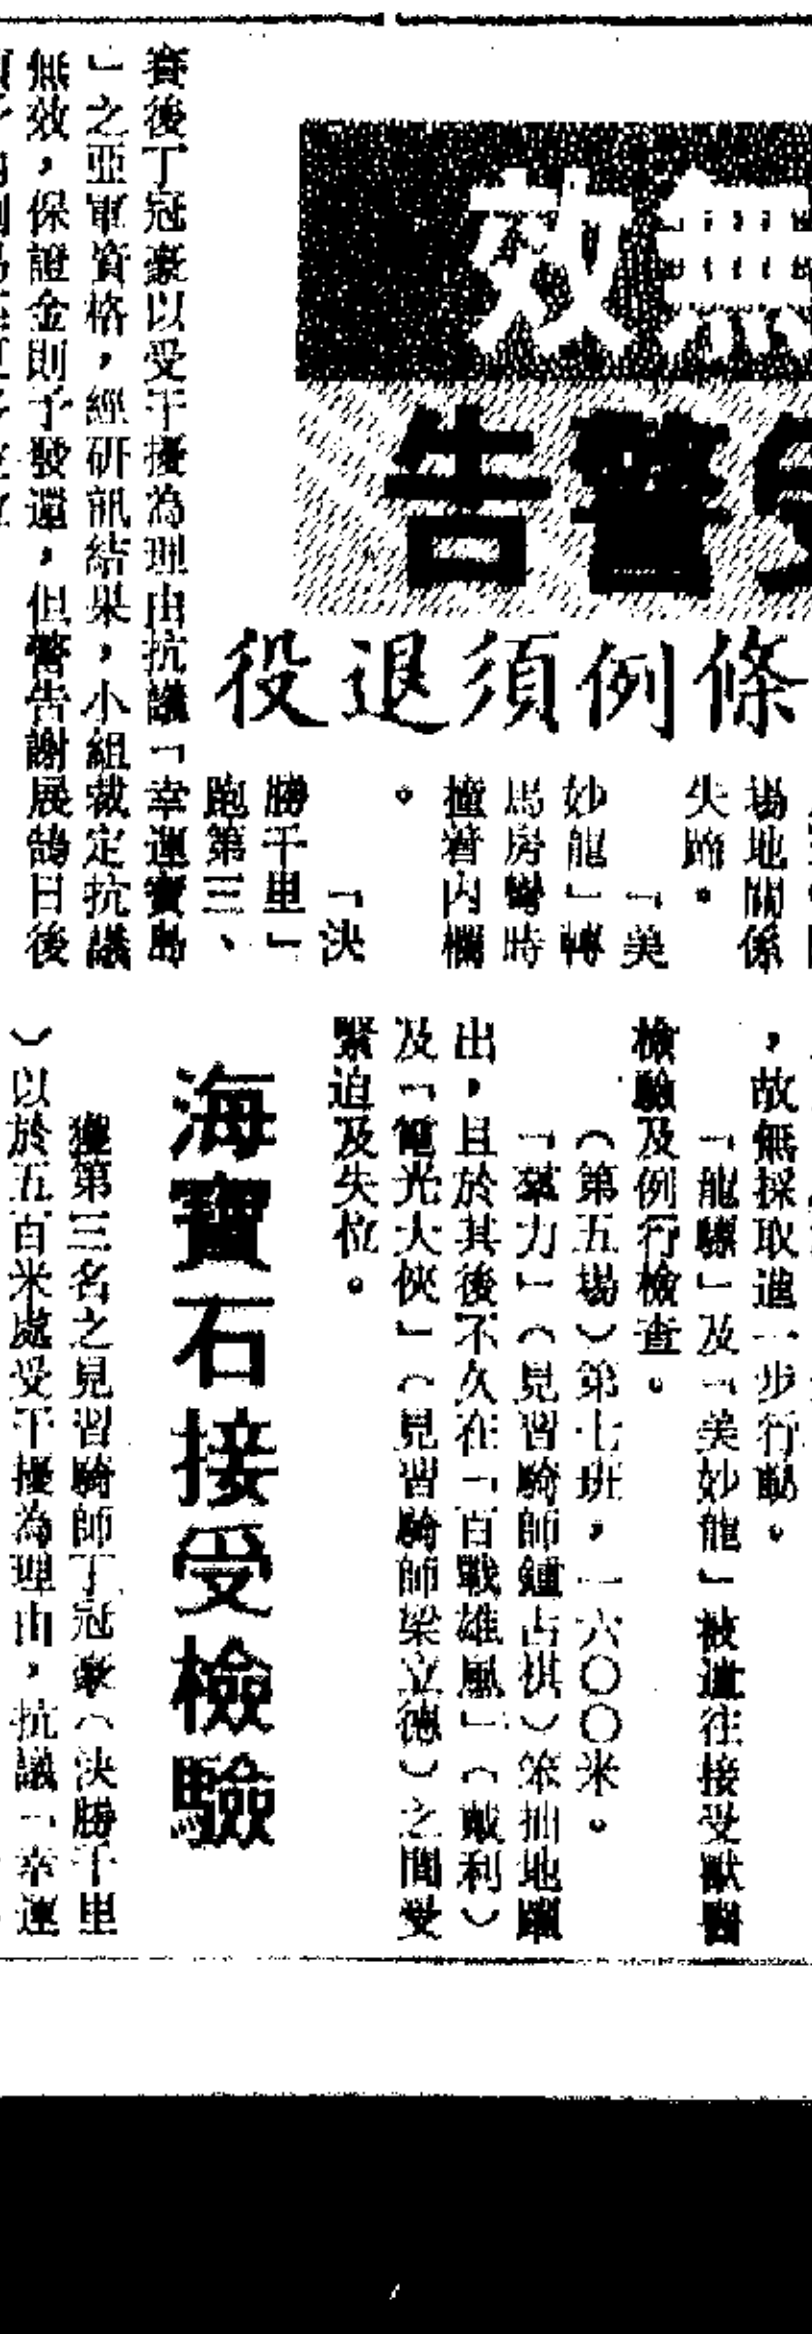 無效
警告
條例須退役
場地關係
失蹄。
「美
妙龍」轉
馬房彎時
撞着內欄
。
「決
勝千里」
跑第三、
賽後丁冠豪以受干擾為理由抗議「幸運寶島
」之亞軍資格,經研訊結果,小組裁定抗議
無效,保證金則予發還,但警告謝展鵠日後
,故無採取進一步行動。
「龍驃」及「美妙龍」被遣往接受獸醫
檢驗及例行檢查。
(第五場)第七班,一六〇〇米。
「羣力」(見習騎師鍾占祺)笨拙地躍
出,且於其後不久在「百戰雄風」(戴利)
及「電光大俠」(見習騎師梁立德)之間受
緊迫及失位。
海寶石接受檢驗
獲第三名之見習騎師丁冠豪(決勝千里
)以於五百米處受干擾為理由,抗議「幸運